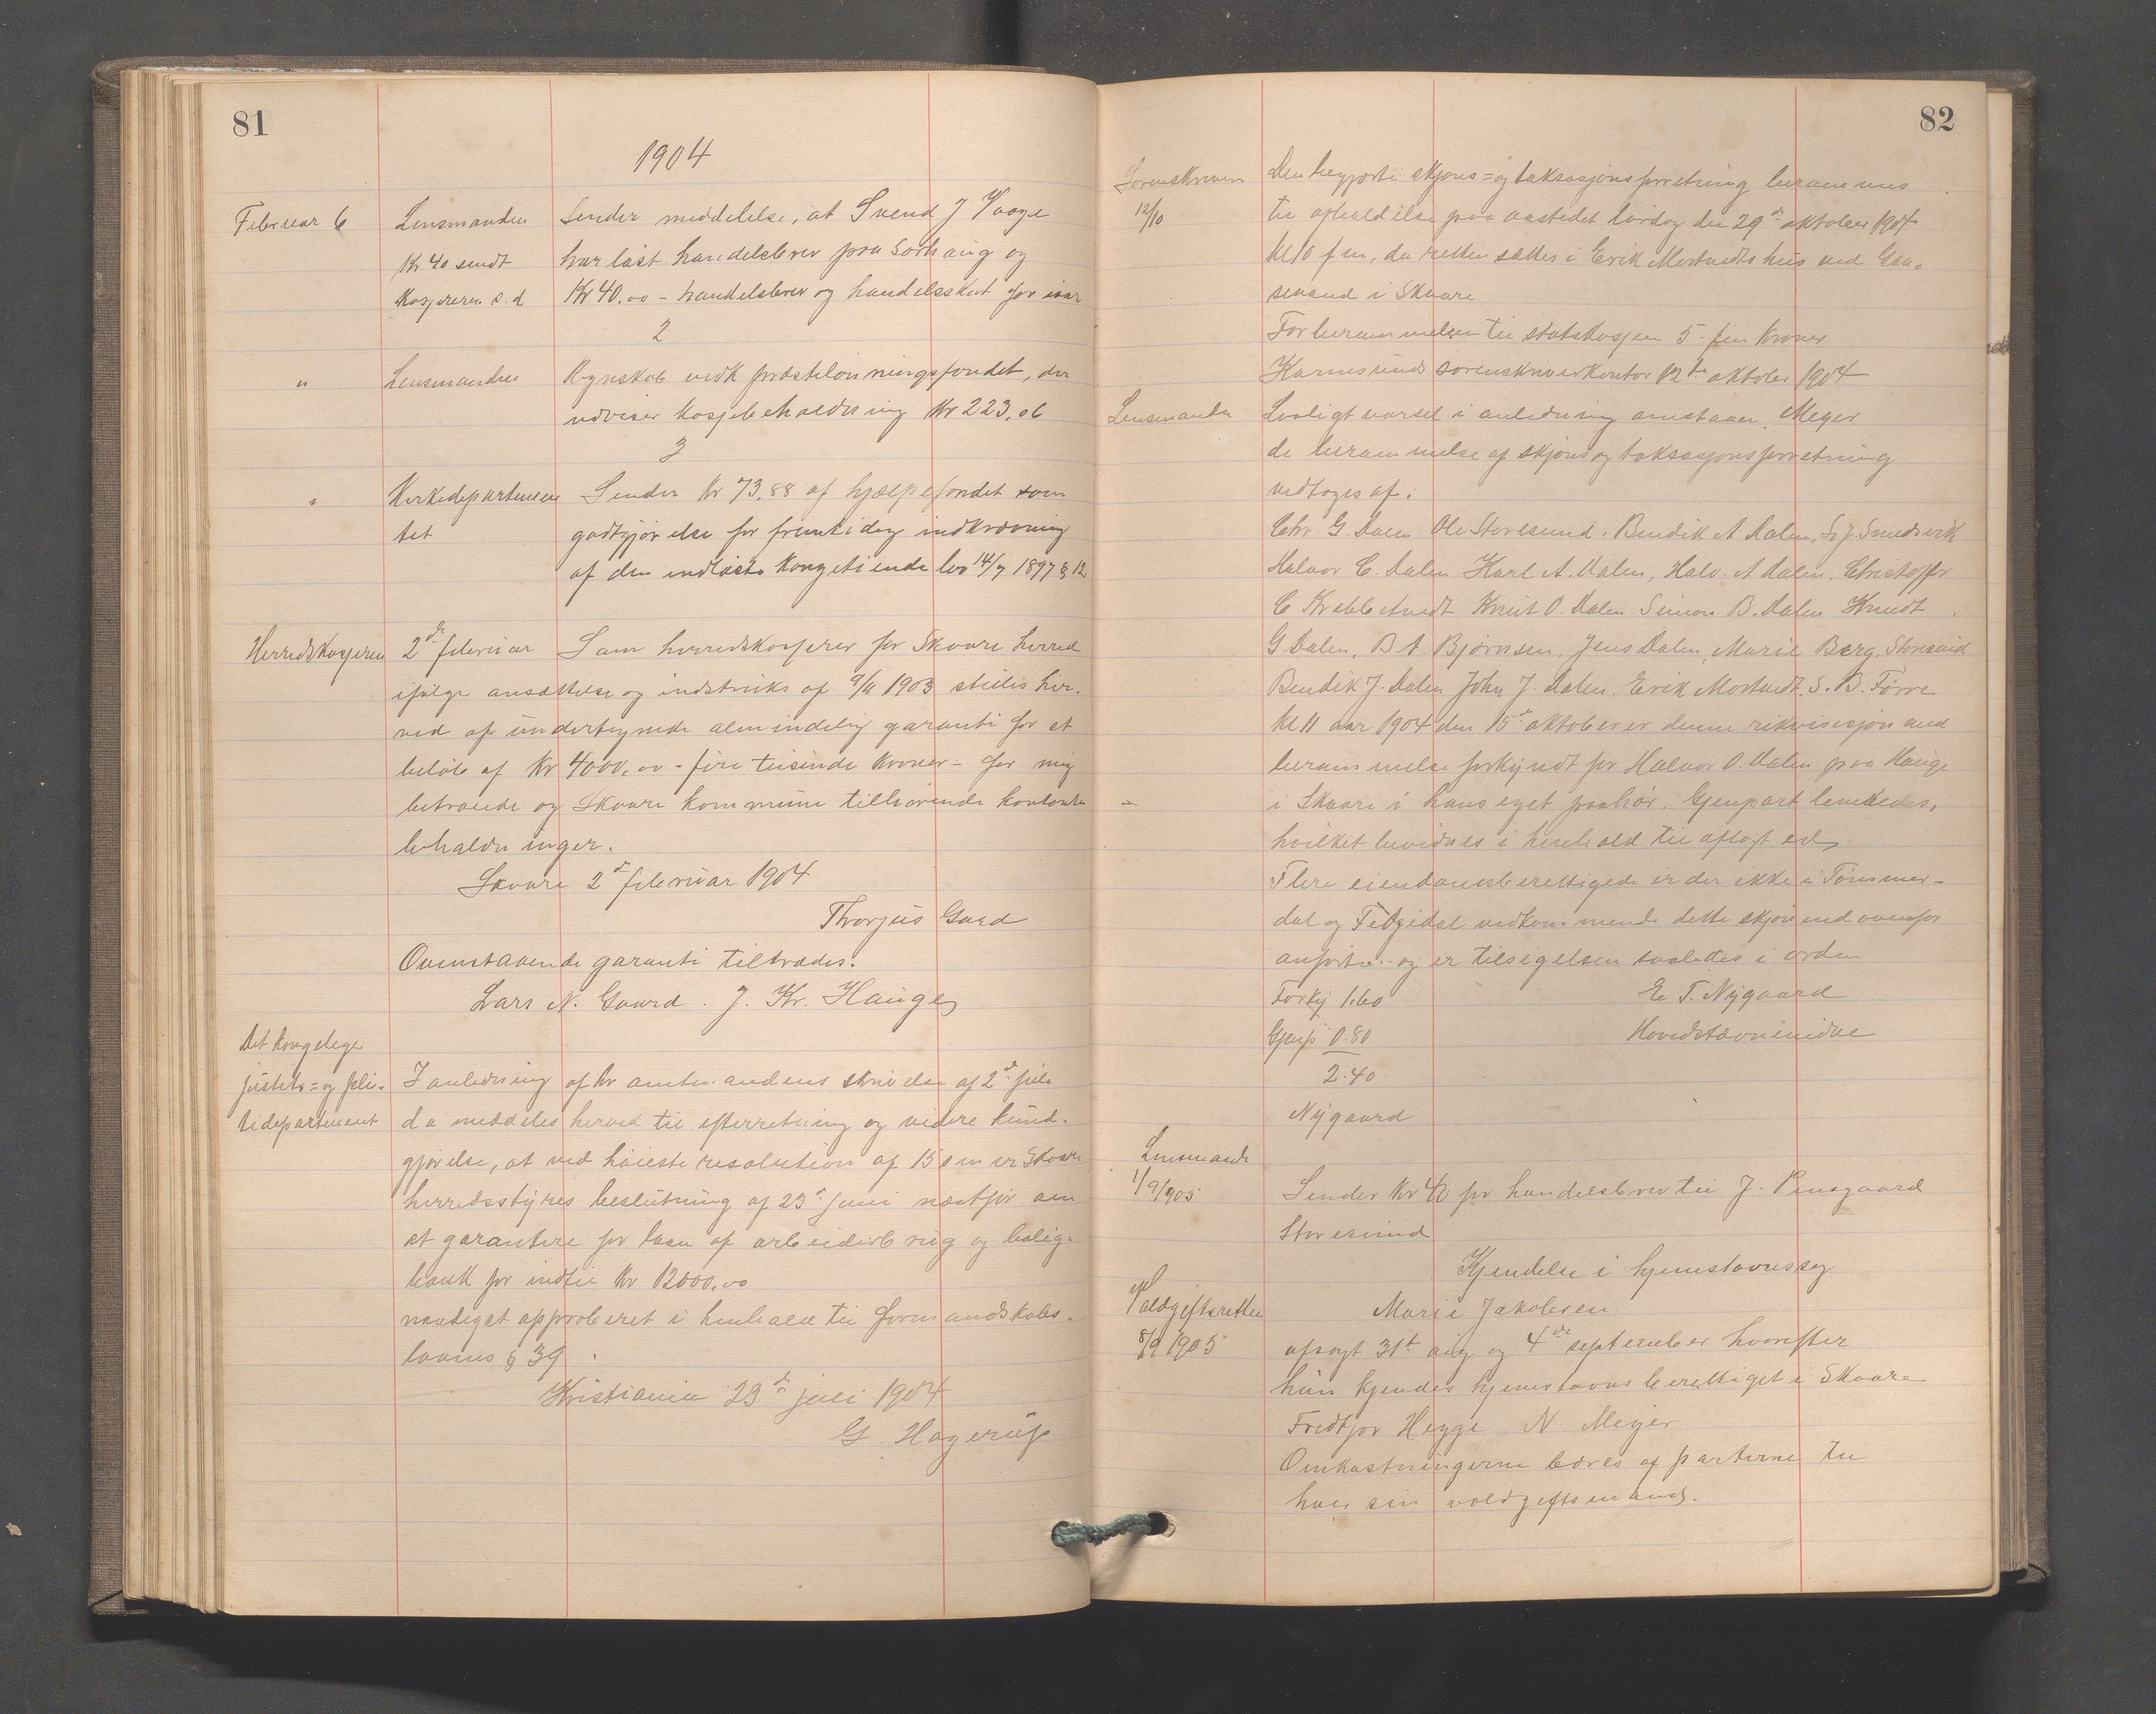 81
1904
Februar 6 Lensmanden Sender meddelelse, at Svend J Vaage
Kr 40 sendt har løst handelsbrev paa Sørhaug og
Kasjereren s. d Kr 40.00 – handelsbrev og handelsskat for iaar
2
" Lensmanden Regnskab vedk præstelønningsfondet, der
udviser kasjebeholdning Kr 223,06
3
" Kirkedepartemen Sender Kr 73.88 af hjælpefondet som
tet godtgjørelse for fremtidig indkrævning
af den indløste Kongetiende lov 14/7 1897 § 12
Herredskasjeren 2de februar Som herredskasjerer for Skaare herred
ifølge ansættelse og instruks af 9/11 1903 stilles her-
ved af undertegnede almindelig garanti for et
beløb af Kr 4000.00 – fire tusinde kroner – for mig
betroede og Skaare kommune tilhørende kontante
beholdninger.
Skaare 2d februar 1904
Thorjus Gaard
Ovenstaaende garanti tiltrædes.
Lars N. Gaard. J. Kr. Hauge
Det kongelige
justits= og poli- I anledning af hr amtmandens skrivelse af 2d juli
tidepartement d a meddeles herved til efterretning og videre kund-
gjørelse, at ved høieste resolution af 15 s m er Skaare
herredsstyres beslutning af 23d juni næstfør om
at garantere for laan af arbeiderbrug og bolig-
bank for indtil Kr 12000.00
naadigst approberet i henhold til formandskabs-
lovens § 39
Kristiania 23d juli 1904
G. Hagerup
82
Sorenskriveren Den begjærte skjøns= og taksasjonsforretning berammes
12/10 til afholdelse paa aastedet lørdag den 29d oktober 1904
kl 10 fm, da retten sættes i Erik Mortvedts hus ved
i Skaare
For berammelsen til statskasjen 5 – fem kroner
Karmsunds sorenskriverkontor 12te oktober 1904
Lensmanden Lovligt varsel i anledning Meyer
de berammelse af skjøns og taksasjonsforretning
vedtages af:
Chr. G. Dalen Ole Storesund. Bendik A Dalen, S. J. Smedsvik
Halvor C. Dalen Karl A. Dalen, Halv. A Dalen. Christoffer
C Krabbetvedt Knut O. Dalen Simon B. Dalen Knudt
G Dalen, B A. Bjørnsen, Jens Dalen, Marie Berg, Storesund
Bendik J. Dalen John J. Dalen. Erik Mortvedt. S. B. Førre
Kl 11 aar 1904 den 15d oktober er denne rekvisisjon med
berammelse forkyndt for Halvor O. Dalen paa Hauge
i Skaare i hans eget paahør. Gjenpart levertes,
hvilket bevidnes i henhold til aflagt ed
Flere eiendomsberettigede er der ikke i Tømmer-
dal og vedkommende dette skjøn end ovenfor
anførte og er tilsigelsen saaledes i orden
Forky 1.60 E. T. Nygaard
Gjenp 0.80 Hovedstævnevidne
2.40
Nygaard
Lensmanden
1/9/905 Sender Kr 40 for handelsbrev til J.
Storesund
Kjendelse i hjemstavnssag
Voldgiftsretten Marie Jakobsen
8/9 1905 afsagt 31te aug og 4de september hvorefter
hun kjendes hjemstavnsberettiget i Skaare
Fredtjov Hegge N. Meyer
Omkostningerne bæres af parterne til
hver sin voldgiftsmand.